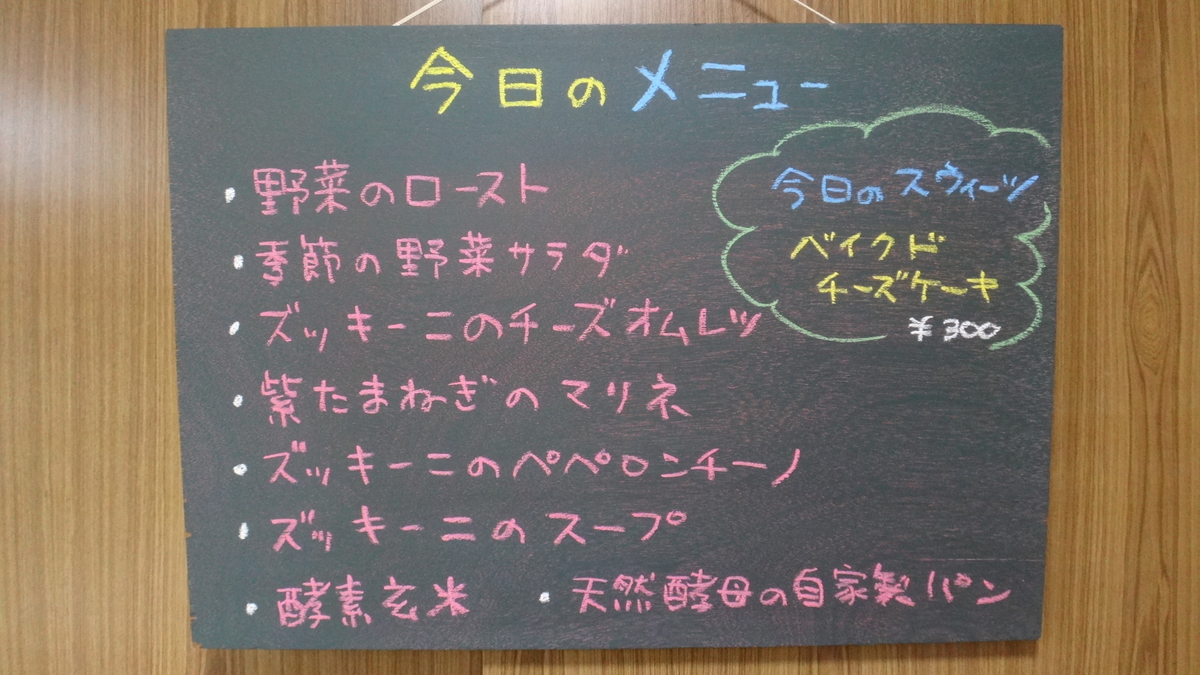 今日のメニュー
・野菜のロースト
・季節の野菜サラダ
・ズッキーニのチーズオムレツ
・紫たまねぎのマリネ
・ズッキーニのペペロンチーノ
・ズッキーニのスープ
・酵素玄米 ・天然酵母の自家製パン
今日のスウィーツ
ベイクド
チーズケーキ
¥300